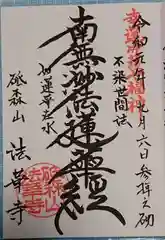 令和元年九月六日参拝之砌
不染世間法
南無妙法蓮華経
如蓮華在水
砥森山
法華寺